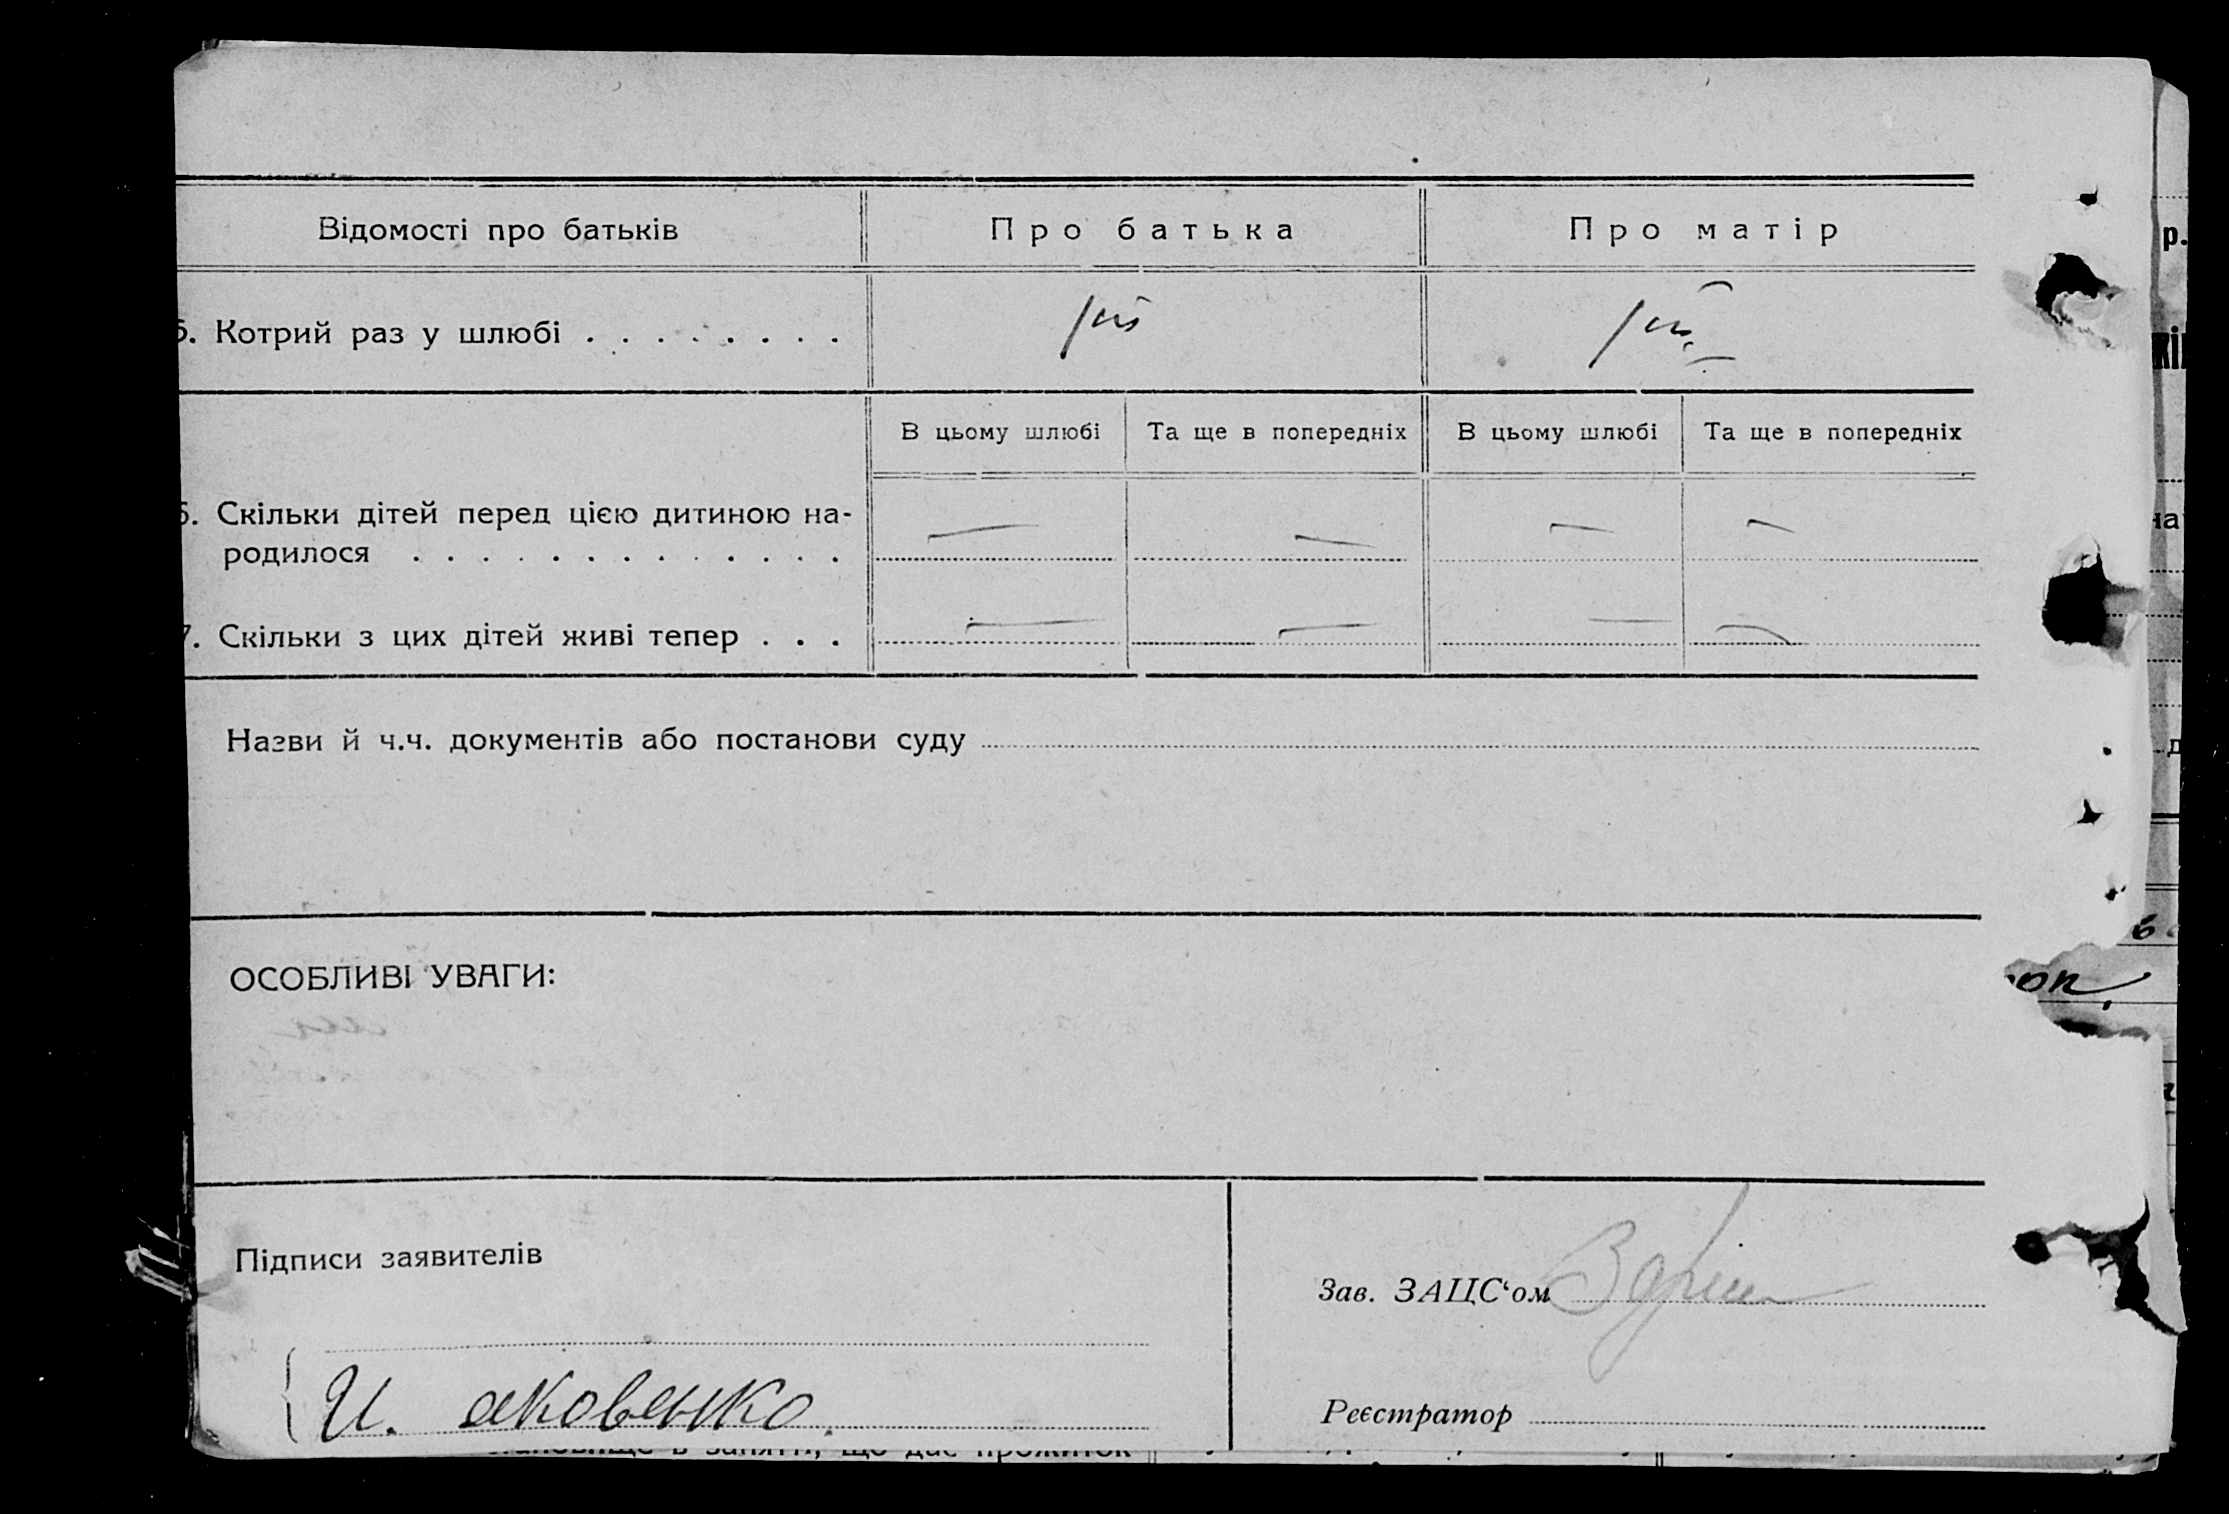 Відомості про батьків
Про батька
Про матір
5. Котрий раз у шлюбі . . . . . . . .
В цьому шлюбі
Та ще в попередніх
В цьому шлюбі
Та ще в попередніх
6. Скільки дітей перед цією дитиною на-
родилося . . . . . . . . . . . . .
— — — —
7. Скільки з цих дітей живі тепер . . .
— — — —
Назви й ч.ч. документів або постанови суду
ОСОБЛИВІ УВАГИ:
Підписи заявителів
И. аковенко
Зав. ЗАЦС‘ом
Реєстратор
становище в занятті, що дає прожиток